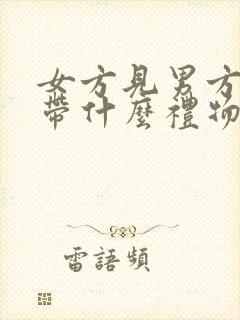 女方見男方
帶什麼禮物
雷語頻